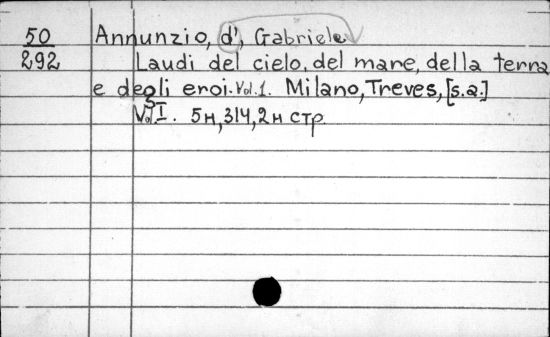 50 Annunzio, d', Gabriele
292 Laudi del cielo, del mare, della terra
e degli eroi. Vol. 1. Milano, Treves, [s.a.]
Vol I. 5н, 314, 2н стр